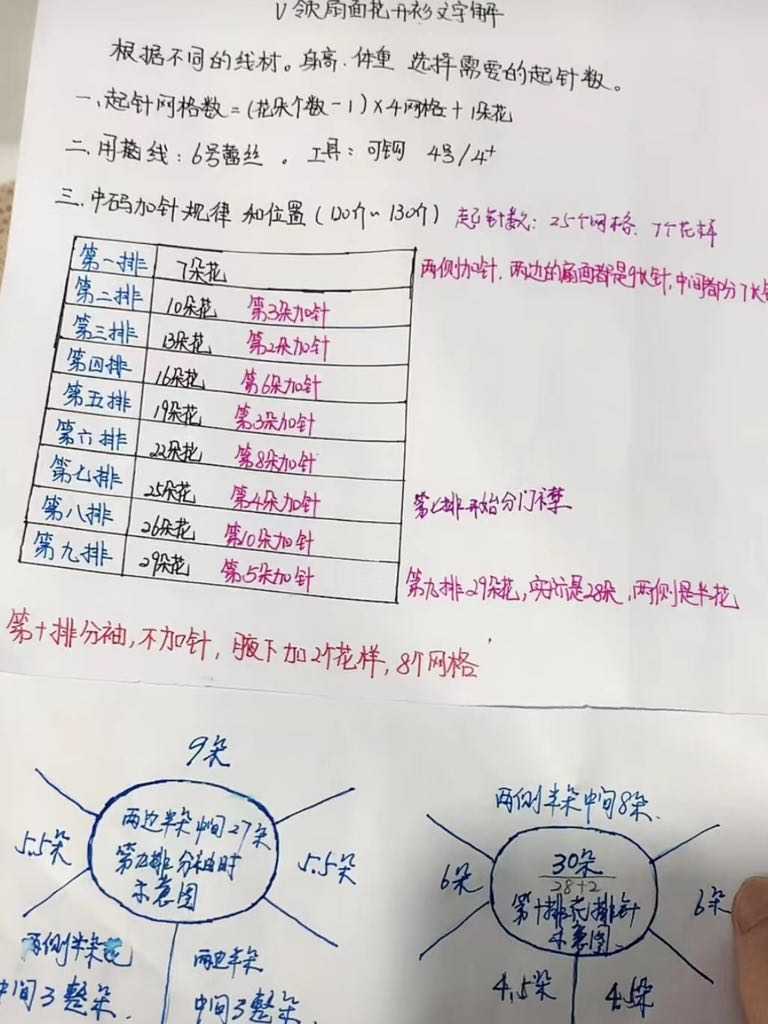 V领扇面花开衫文字解
根据不同的线材。身高.体重 选择需要的起针数。
一、起针网格数=(花朵个数-1)×4网格+1朵花
二.用线:6号蕾丝。工具:可钩 4号/4⁺
三.中码加针规律和位置(120斤~130斤)起针数:25个网格.7个花样
第一排 7朵花 两侧加针,两边的扇面都是9长针,中间都分7长针
第二排 10朵花 第3朵加针
第三排 13朵花 第2朵加针
第四排 16朵花 第6朵加针
第五排 19朵花 第3朵加针
第六排 22朵花 第8朵加针
第七排 25朵花 第4朵加针 第七排开始分门襟
第八排 26朵花 第10朵加针
第九排 29朵花 第5朵加针 第九排29朵花,实际是28朵,两侧是半花
第十排分袖,不加针,腋下加2个花样,8个网格
9朵
两边半朵中间27朵
第九排分袖时
示意图
5.5朵
5.5朵
两侧半朵花
中间3整朵.
两边半朵
中间3整朵.
两侧半朵中间8朵.
30朵
28+2
第十排花排针
示意图.
6朵
6朵
4.5朵
4.5朵